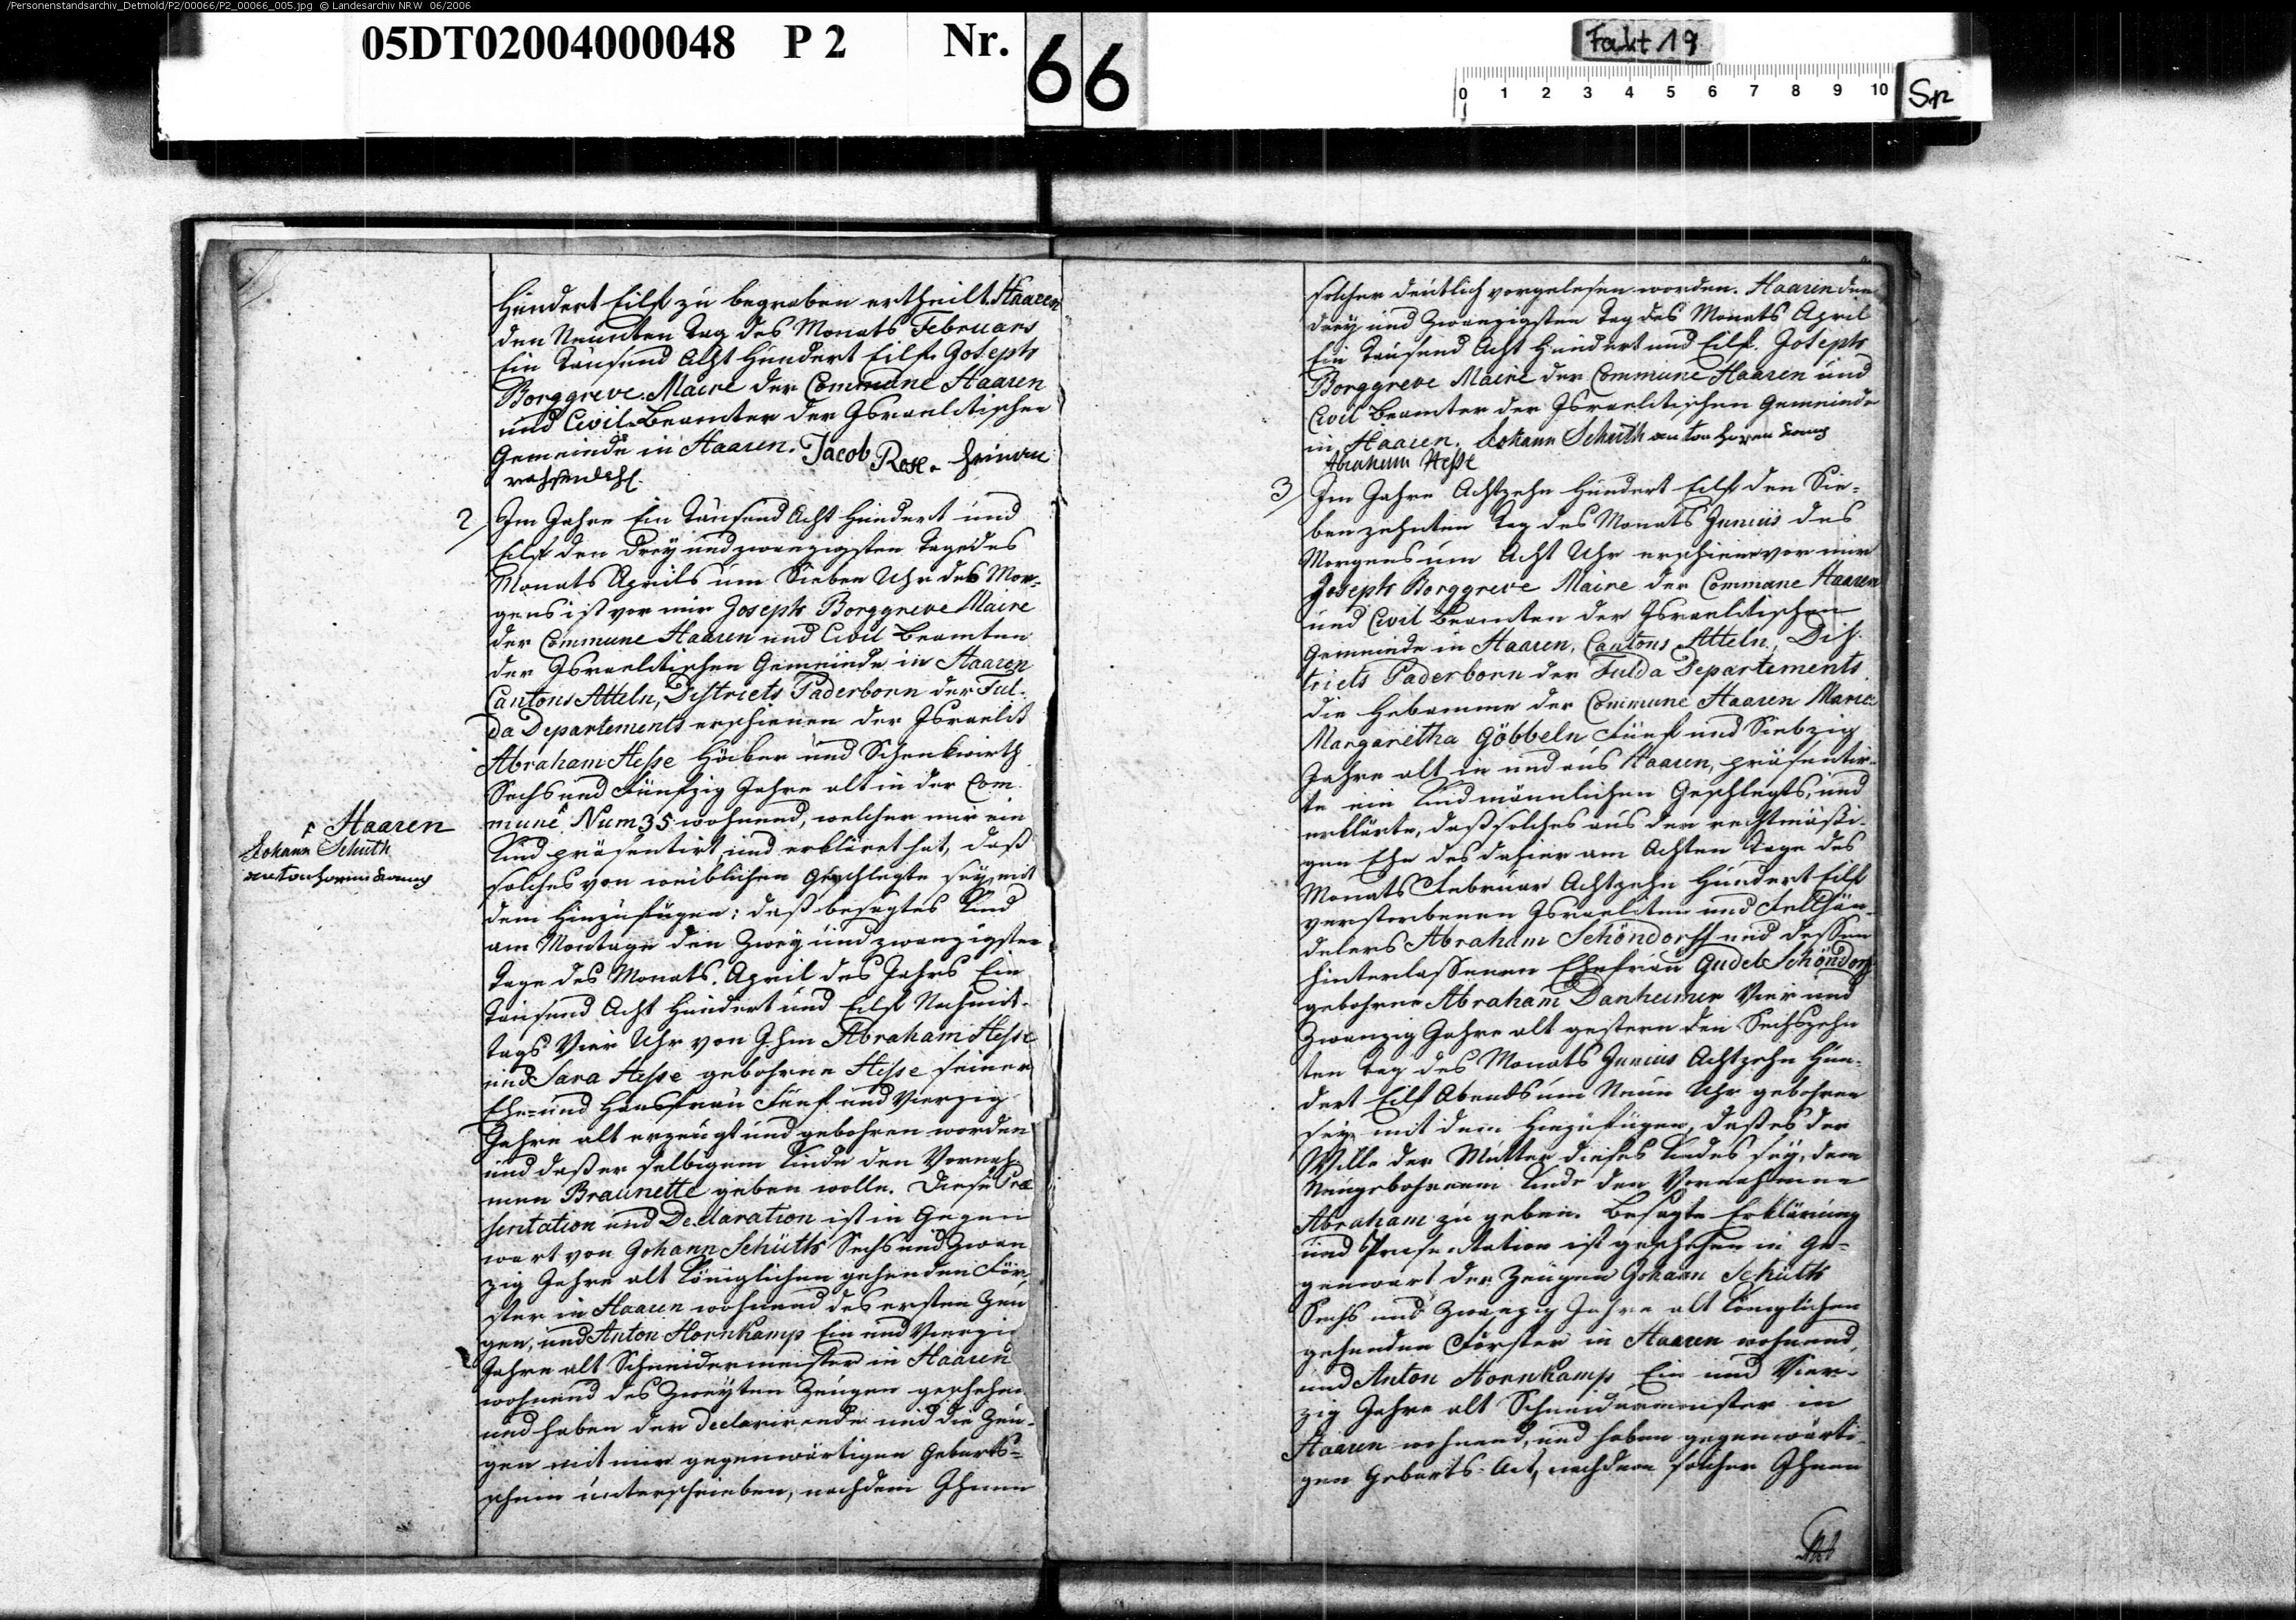 /Personenstandsarchiv_Detmold/P2/00066/P2_00066_005.jpg © Landesarchiv NRW 06/2006
05DT02004000048 P 2 Nr. 66
Fakt 19
0 1 2 3 4 5 6 7 8 9 10
Sp
Hundert Eilf zu begraben ertheilt. Haaren
den Neunten Tag des Monats Februars
Ein Tausend Acht Hundert Eilf. Joseph
Borggreve Maire der Commune Haaren
und Civil-Beamter der Israelitischen
Gemeinde in Haaren. Jacob Rose.
2 Im Jahre Ein Tausend Acht Hundert und
Eilf den drey und zwanzigsten Tage des
Monats Aprils um Sieben Uhr des Mor-
gens ist vor mir Joseph Borggreve Maire
der Commune Haaren und Civil Beamten
der Israelitischen Gemeinde in Haaren
Cantons Atteln, Districts Paderborn der Ful-
da Departements erschienen der Israelit
Abraham Hesse Höcker und Schenkwirth
Sechs und Fünfzig Jahre alt in der Com
mune Num 35 wohnend, welcher mir ein
Kind präsentirt und erkläret hat, daß
solches von weiblichen Geschlegte sey, mit
dem Hinzufügen: daß besagtes Kind
am Montage den Zwey und zwanzigsten
Tage des Monats April des Jahrs Ein
Tausend Acht Hundert und Eilf Nachmit-
tags Vier Uhr von Ihm Abraham Hesse
und Sara Hesse gebohrne Hesse seiner
Ehe- und Hausfrau Fünf und Vierzig
Jahre alt erzeugt und gebohren worden
und daß er selbigem Kinde den Vornah
men Braunette geben wolle. Diese Prä
sentation und Declaration ist in Gegen
wart von Johann Schüth Sechs und Zwan
zig Jahre alt Königlichen gehenden För
ster in Haaren wohnend des ersten Zeu
gen, und Anton Hornkamp Ein und Vierzig
Jahre alt Schneidermeister in Haaren
wohnend des Zweyten Zeugen geschehen
und haben der Declarirende und die Zeu-
gen mit mir gegenwärtigen Geburts-
schein unterschrieben, nachdem Ihnen
Haaren
Johann Schüth
solcher deutlich vorgelesen worden. Haaren den
drey und Zwanzigsten Tag des Monats April
Ein Tausend Acht Hundert und Eilf. Joseph
Borggreve Maire der Commune Haaren und
Civil Beamter der Israelitischen Gemeinde
in Haaren. Johann Schüth
Abraham Hesse
3 Im Jahre Achtzehn Hundert Eilf den Sie-
benzehnten Tag des Monats Junius des
Morgens um Acht Uhr erschien vor mir
Joseph Borggreve Maire der Commune Haaren
und Civil Beamten der Israelitischen
Gemeinde in Haaren, Cantons Atteln, Dis-
tricts Paderborn der Fulda Departements
die Hebamme der Commune Haaren Maria
Margaretha Göbbeln Fünf und Siebzig
Jahre alt in und aus Haaren, präsentir-
te ein Kind männlichen Geschlegts, und
erklärte, daß solches aus der rechtmäßi-
gen Ehe des dahier am Achten Tage des
Monats Februar Achtzehn Hundert Eilf
verstorbenen Israeliten und Fellhän-
delers Abraham Schöndorff und dessen
hinterlassenen Ehefrau Gudel Schöndorf
gebohrne Abraham Danheimer Vier und
Zwanzig Jahre alt gestern den Sechszehn
ten Tag des Monats Junius Achtzehn Hun-
dert Eilf Abends um Neun Uhr gebohren
sey, mit dem Hinzufügen, daß es der
Wille der Mutter dieses Kindes sey, dem
Neugebohrenen Kinde den Vornahmen
Abraham zu geben. Besagte Erklärung
und Presentation ist geschehen in Ge-
genwart der Zeugen Johann Schüth
Sechs und Zwanzig Jahre alt Königlichen
gehenden Förster in Haaren wohnend,
und Anton Hornkamp Ein und Vier-
zig Jahre alt Schneidermeister in
Haaren wohnend, und haben gegenwärti-
gen Geburts-Act, nachdem solcher Ihnen